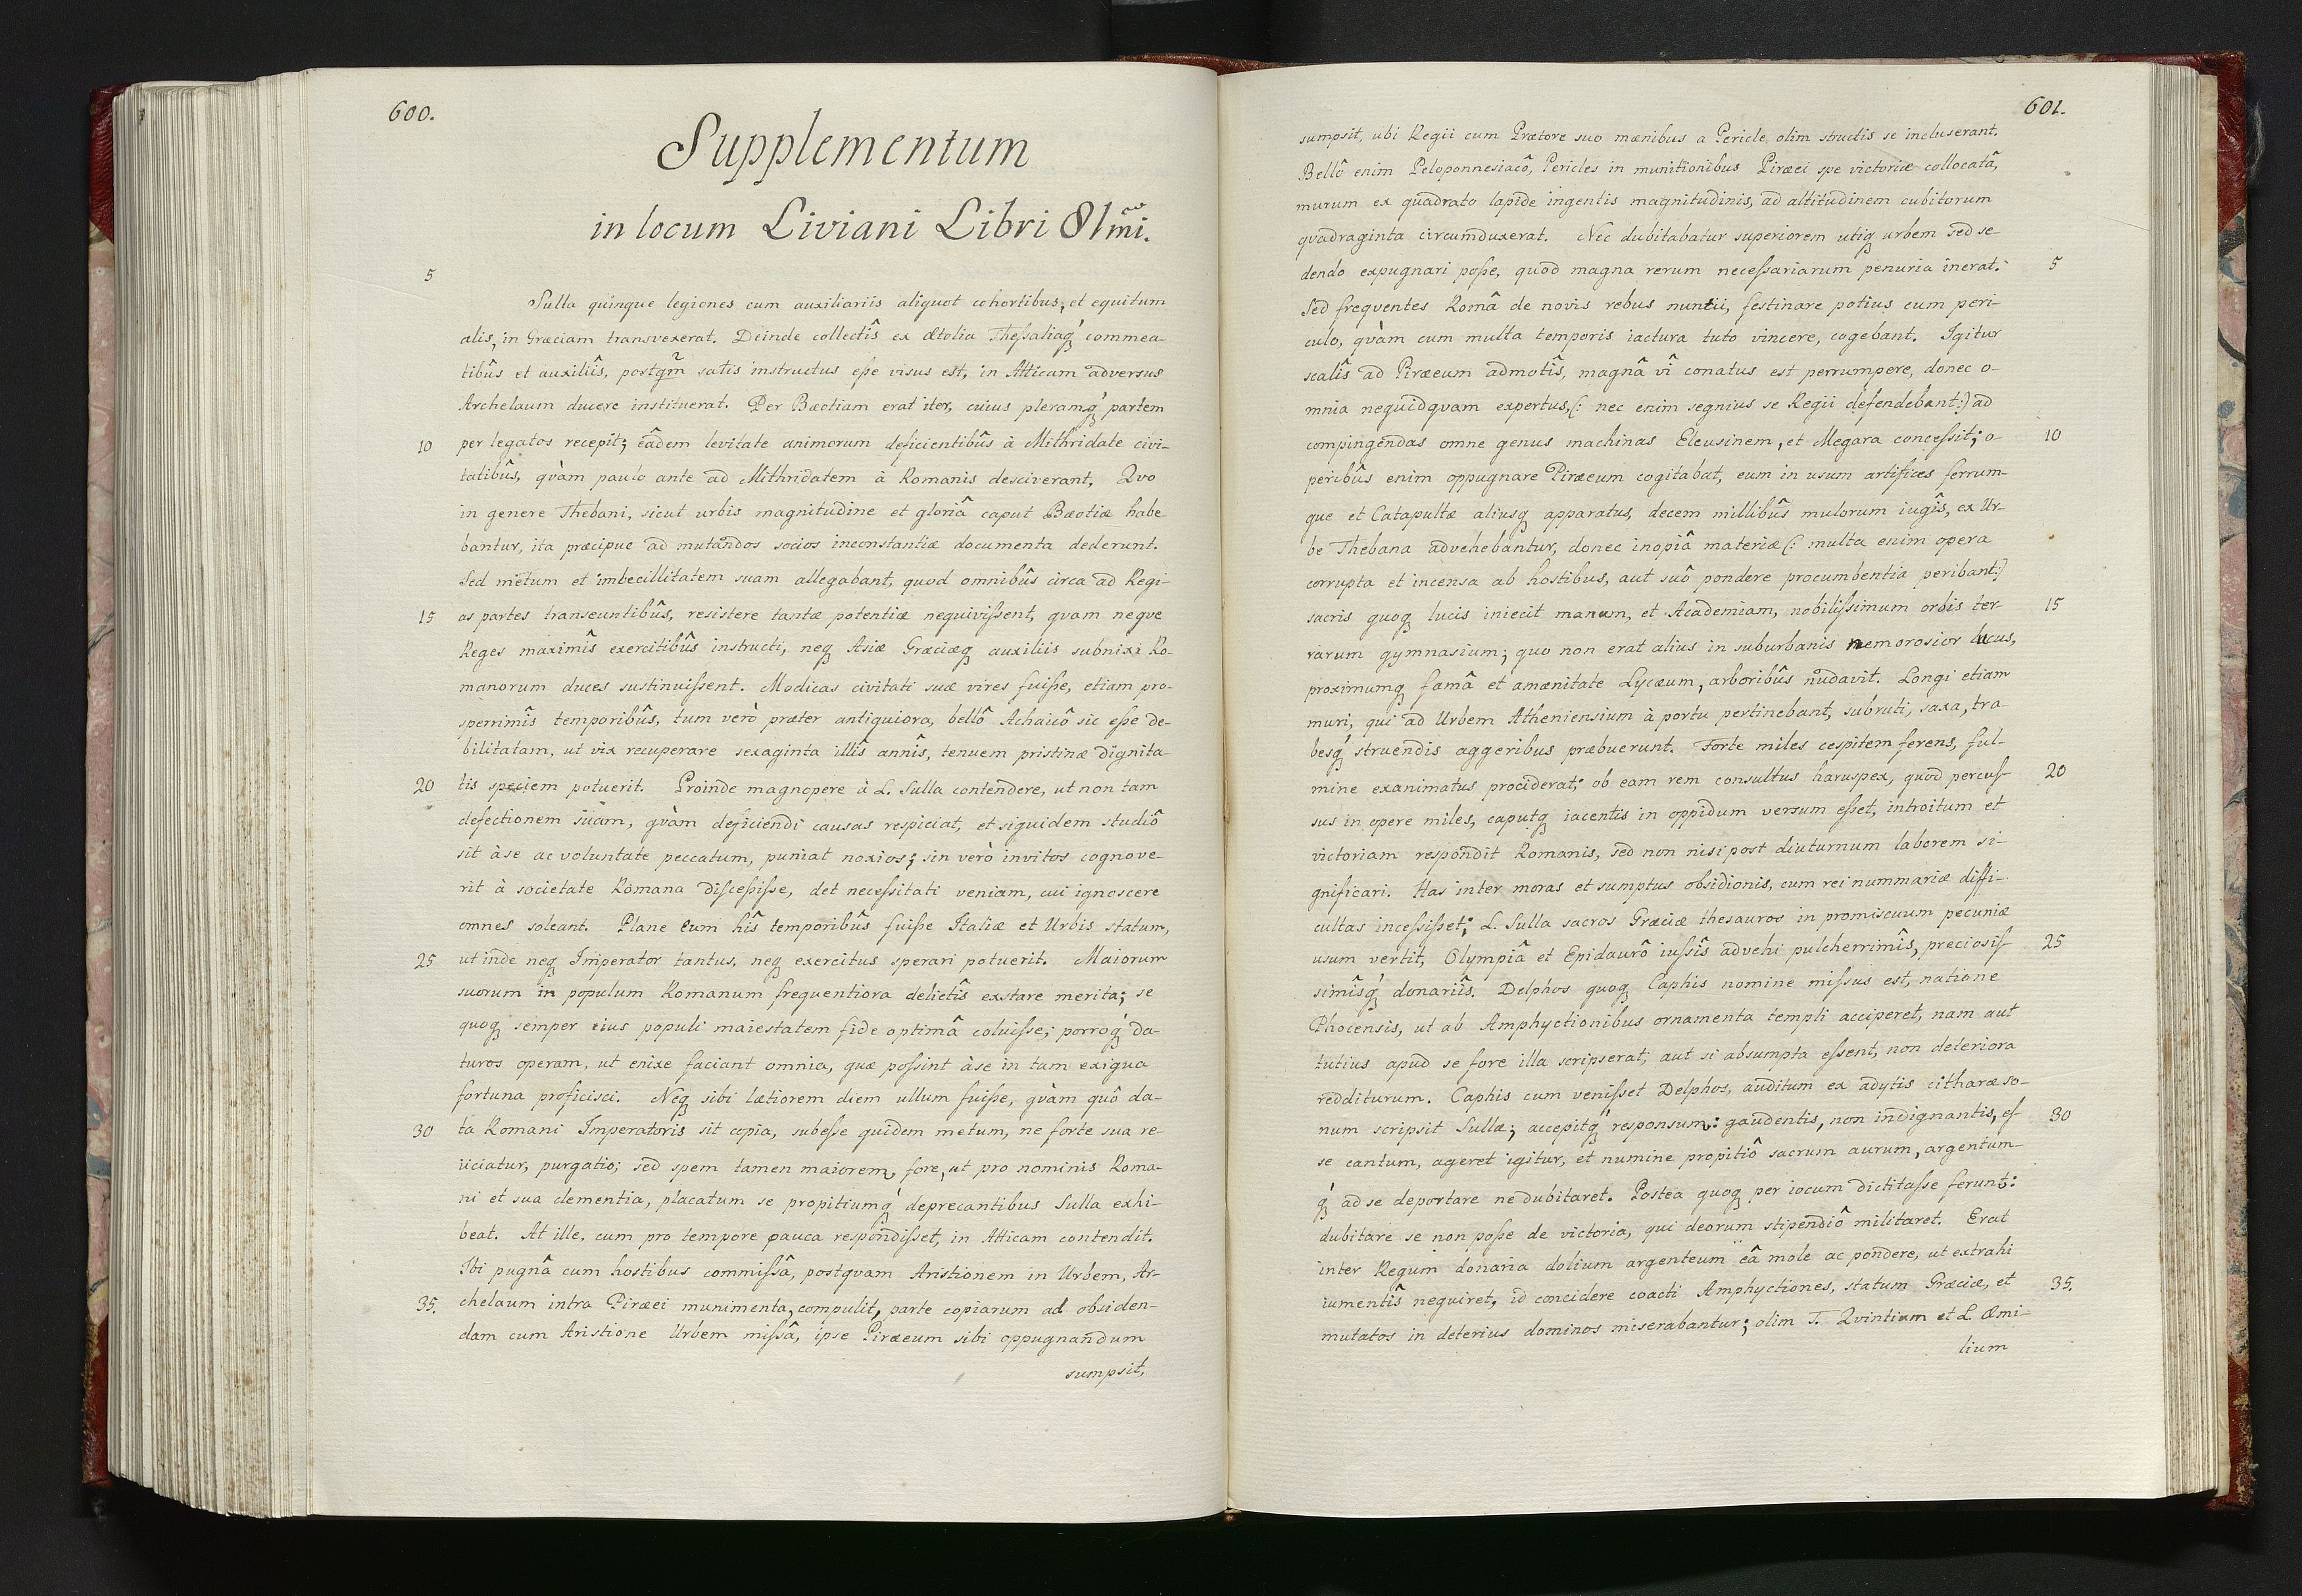 600.
Supplementum
in locum Liviani Libri 81mi.
5
Sulla quinque legiones cum auxiliariis aliquot cohortibus, et equitum
alis, in Græciam transvexerat. Deinde collectîs ex Ætolia Theſsaliaq́ commea-
tibûs et auxiliîs, postqm̃ satis instructus eſse visus est, in Atticam adversus
Archelaum ducere instituerat. Per Bœotiam erat iter, cuius pleramq́ partem
10 per legatos recepit; eâdem levitate animorum deficientibûs à Mithridate civi-
tatibûs, qvàm paulo ante ad Mithridatem à Romanis desciverant, Qvo
in genere Thebani, sicut urbis magnitudine et gloriâ caput Bœotiæ habe-
bantur, ita præcipue ad mutandos socios inconstantiæ documenta dederunt.
Sed metum et imbecillitatem suam allegabant, quod omnibûs circa ad Regi-
15 as partes transeuntibûs, resistere tantæ potentiæ nequiviſsent, qvam neqve
Reges maximîs exercitibûs instructi, neq Asiæ Græciæq auxiliis subnixi Ro-
manorum duces sustinuiſsent. Modicas civitati suæ vires fuiſse, etiam pro-
sperrimîs temporibûs, tum verò præter antiquiora, bellô Achaicô sic eſse de-
bilitatam, ut vix recuperare sexaginta illîs annîs, tenuem pristinæ dignita-
20 tis speciem potuerit. Proinde magnopere à L. Sulla contendere, ut non tam
defectionem suam, qvàm deficiendi causas respiciat, et siquidem studiô
sit à se ac voluntate peccatum, puniat noxios; sin verò invitos cognove-
rit à societate Romana diſceſsiſse, det neceſsitati veniam, cui ignoscere
omnes soleant. Plane eum hîs temporibûs fuiſse Italiæ et Urbis statum,
25 ut inde neq Imperator tantus, neq exercitus sperari potuerit. Maiorum
suorum in populum Romanum frequentiora delictîs exstare merita; se
quoq semper eius populi maiestatem fide optimâ coluiſse; porroq́ da-
turos operam, ut enixe faciant omnia, quæ poſsint à se in tam exigua
fortuna proficisci. Neq sibi lætiorem diem ullum fuiſse, qvàm quô da-
30 ta Romani Imperatoris sit copia, subeſse quidem metum, ne forte sua re-
iiciatur, purgatio; sed spem tamen maiorem, fore, ut pro nominis Roma-
ni et sua clementia, placatum se propitiumq́ deprecantibus Sulla exhi-
beat. At ille, cum pro tempore pauca respondiſset, in Atticam contendit.
Ibi pugnâ cum hostibus commiſsâ, postqvam Aristionem in Urbem, Ar-
35. chelaum intra Piræei munimenta, compulit, parte copiarum ad obsiden-
dam cum Aristione Urbem miſsâ, ipse Piræeum sibi oppugnandum
sumpsit,
601.
sumpsit, ubi Regii cum Prætore suo mœnibus a Pericle olim structis se incluserant.
Bellô enim Peloponnesiacô, Pericles in munitionibus Piræei spe victoriæ collocatâ,
murum ex quadrato lapide ingentis magnitudinis, ad altitudinem cubitorum
quadraginta circumduxerat. Nec dubitabatur superiorem utiq urbem sed se-
dendo expugnari poſse, quod magna rerum neceſsariarum penuria inerat. 5
Sed freqventes Româ de novis rebus nuntii, festinare potius cum peri-
culo, qvàm cum multa temporis iactura tuto vincere, cogebant. Igitur
scalîs ad Piræeum admotîs, magnâ vî conatus est perrumpere, donec o-
mnia nequidqvam expertus, (: nec enim segnius se Regii defendebant:) ad
compingendas omne genus machinas Eleusinem, et Megara conceſsit; o- 10
peribûs enim oppugnare Piræeum cogitabat, eum in usum artifices ferrum-
que et Catapultæ aliusq apparatus, decem millibûs mulorum iugîs, ex Ur-
be Thebana advehebantur, donec inopiâ materiæ (: multa enim opera
corrupta et incensa ab hostibus, aut suô pondere procumbentia peribant:)
sacris quoq lucis iniecit manum, et Academiam, nobiliſsimum orbis ter- 15
rarum gymnasium; quo non erat alius in suburbanis nemorosior lucus,
proximumq famâ et amœnitate Lycæum, arboribûs nudavit. Longi etiam
muri, qui ad Urbem Atheniensium à portu pertinebant, subruti, saxa, tra-
besq́ struendis aggeribus præbuerunt. Forte miles cespitem ferens, ful-
mine exanimatus prociderat; ob eam rem consultus haruspex, quod percuſ- 20
sus in opere miles, caputq iacentis in oppidum versum eſset, introitum et
victoriam respondit Romanis, sed non nisi post diuturnum laborem si-
gnificari. Has inter moras et sumptus obsidionis, cum rei nummariæ diffi-
cultas inceſsiſset; L. Sulla sacros Græciæ thesauros in promiscuum pecuniæ
usum vertit, Olympiâ et Epidaurô iuſsîs advehi pulcherrimîs, preciosiſ- 25
simîsq́ donariîs. Delphos quoq Caphis nomine miſsus est, natione
Phocensis, ut ab Amphyctionibus ornamenta templi acciperet, nam aut
tutius apud se fore illa scripserat, aut si absumpta eſsent, non deteriora
redditurum. Caphis cum veniſset Delphos, auditum ex adytis citharæ so-
num scripsit Sullæ; accepitq́ responsum: gaudentis, non indignantis, eſ- 30
se cantum, ageret igitur, et numine propitiô sacrum aurum, argentum-
q́ ad se deportare ne dubitaret. Postea quoq per iocum dictitaſse ferunt:
dubitare se non poſse de victoria, qui deorum stipendiô militaret. Erat
inter Regum donaria dolium argenteum eâ mole ac pondere, ut extrahi
iumentîs nequiret, id concidere coacti Amphyctiones, statum Græciæ, et 35.
mutatos in deterius dominos miserabantur; olim T. Qvintium et L. Æmi-
lium